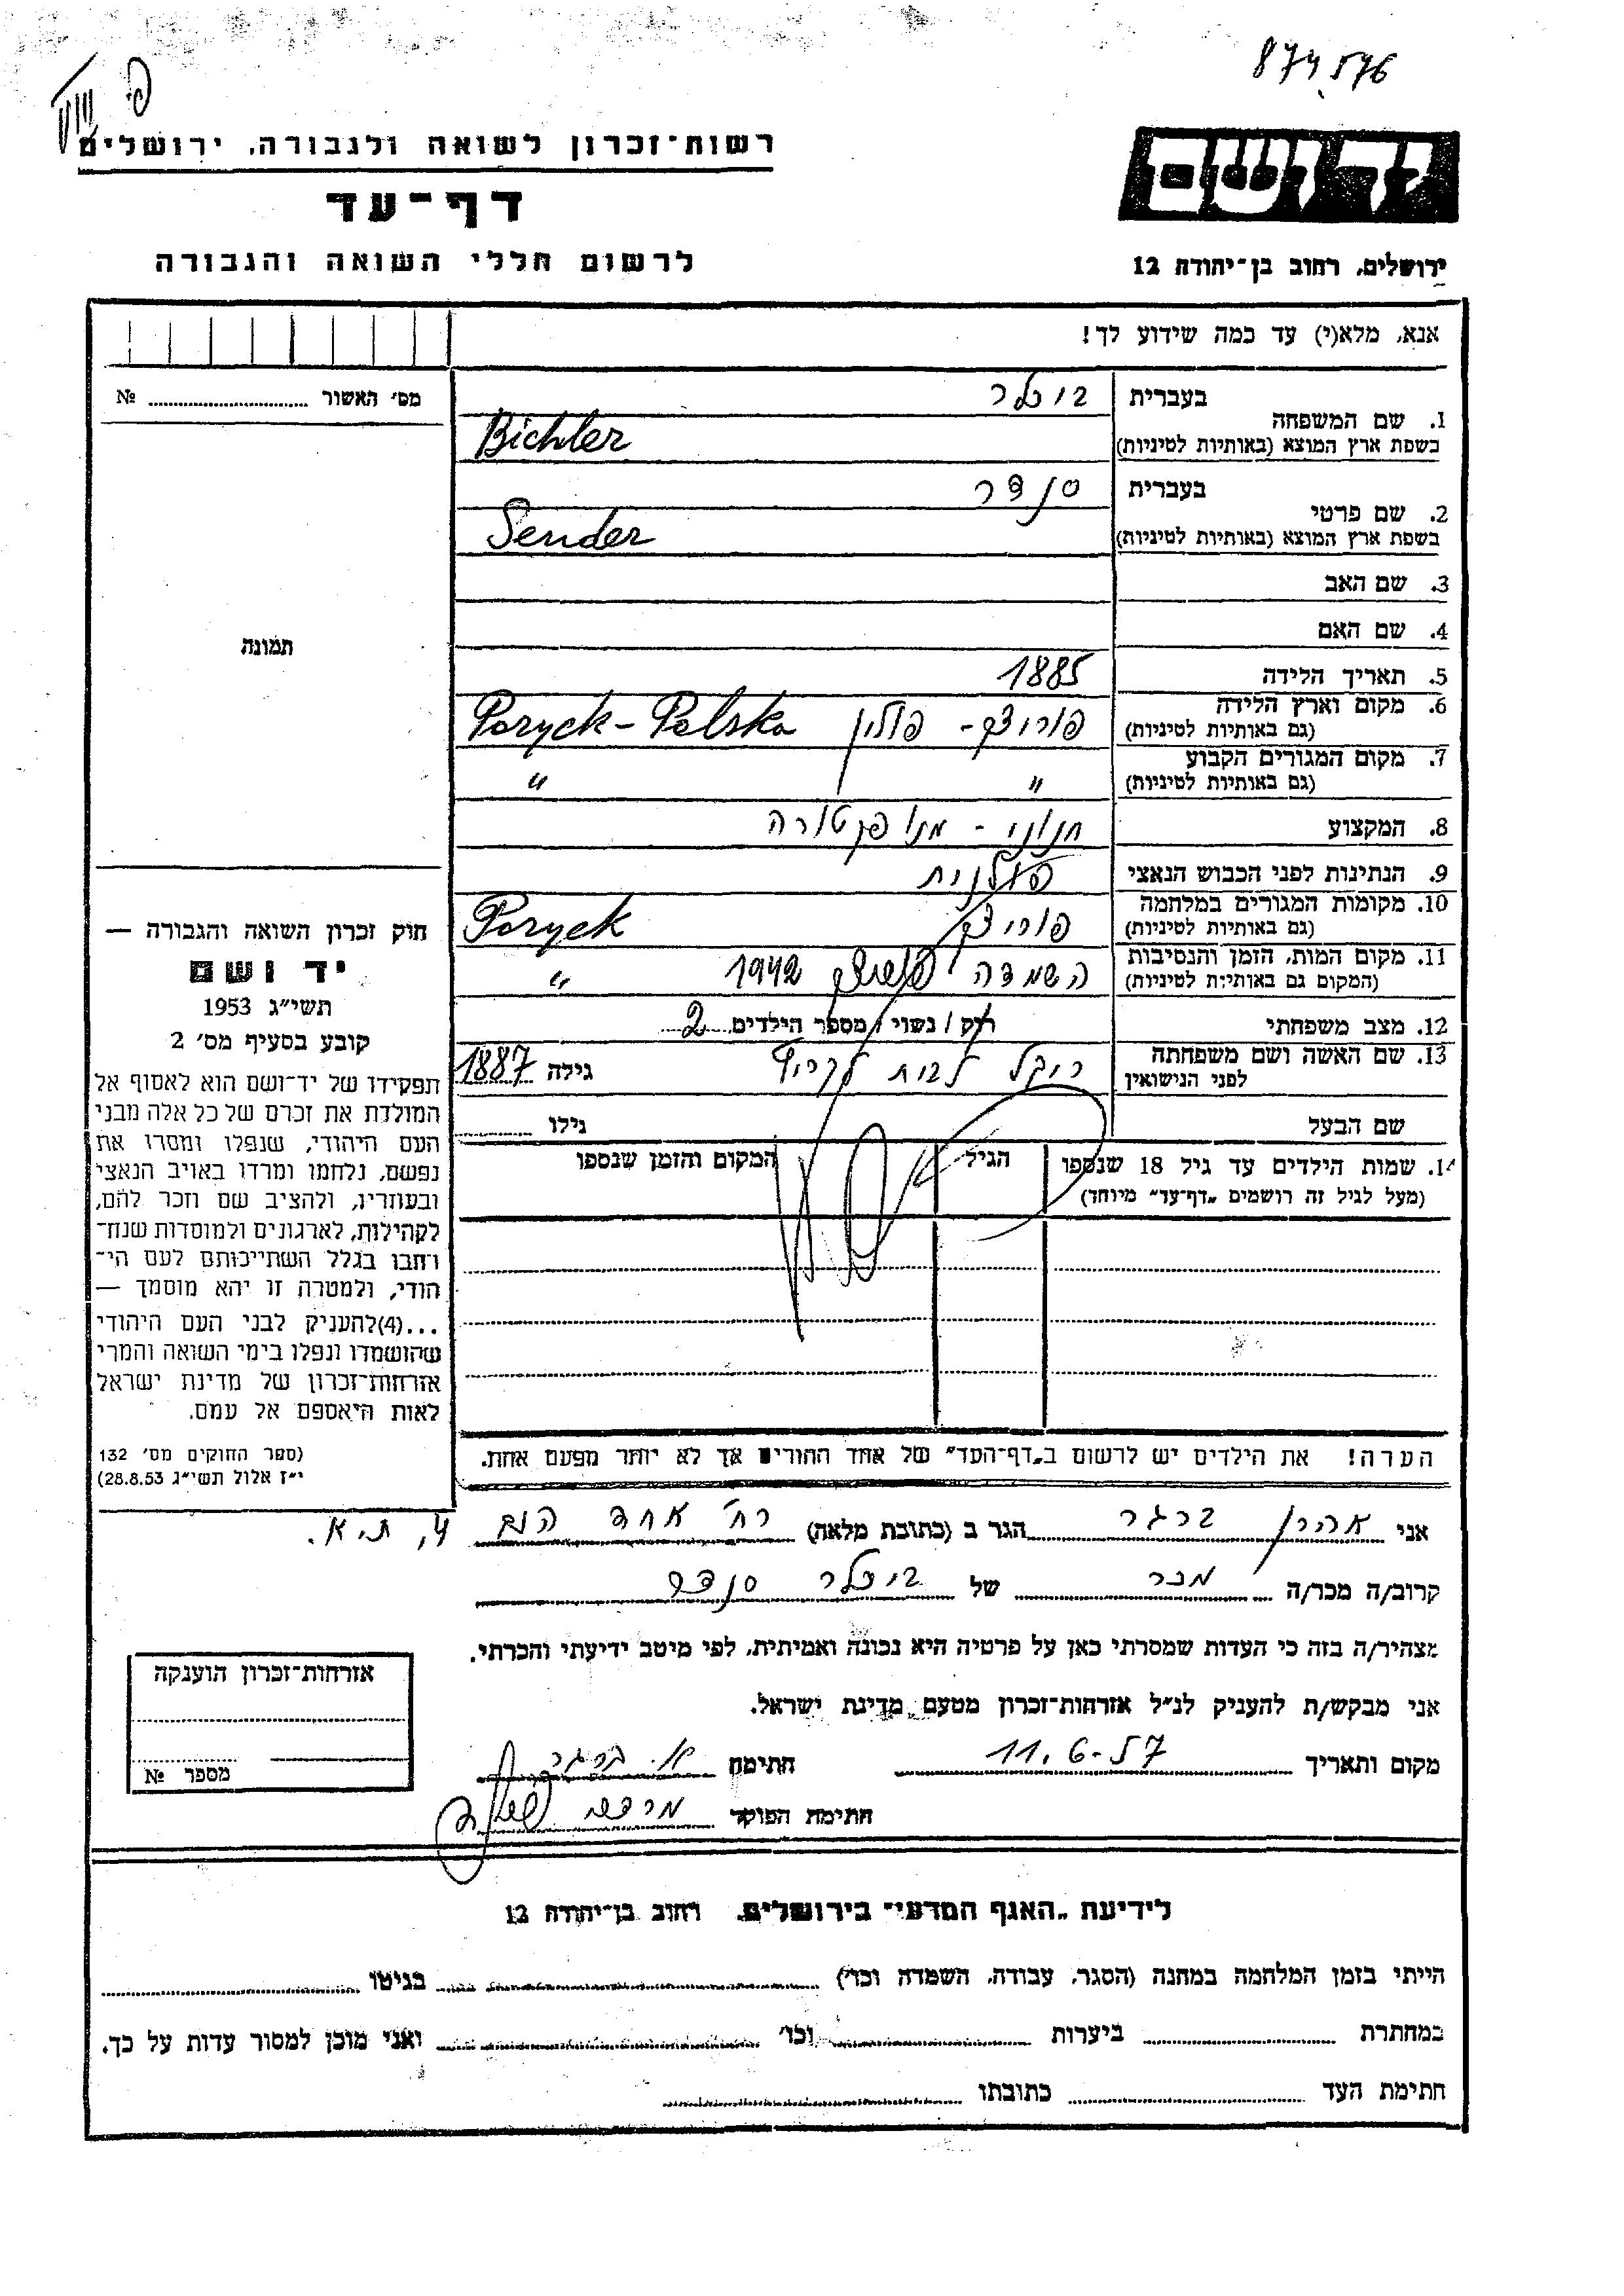 874576
רשות־זכרון לשואה ולגבורה, ירושלים
דף־עד
לרשום חללי השואה והגבורה
ידושם
ירושלים, רחוב בן־יהודה 12
אנא, מלא(י) עד כמה שידוע לך!
מס׳ האשור № 
1. שם המשפחה
בעברית בוכלר
בשפת ארץ המוצא (באותיות לטיניות) Bichler
2. שם פרטי
בעברית סנדר
בשפת ארץ המוצא (באותיות לטיניות) Sender
3. שם האב
4. שם האם
5. תאריך הלידה 1885
6. מקום וארץ הלידה פוריצק - פולין Poryck - Polska
(גם באותיות לטיניות)
7. מקום המגורים הקבוע " "
(גם באותיות לטיניות)
8. המקצוע חנוני - מנופקטורה
9. הנתינות לפני הכבוש הנאצי פולנית
10. מקומות המגורים במלחמה פוריצק Poryck
(גם באותיות לטיניות)
11. מקום המות, הזמן והנסיבות השמדה 1942 "
(המקום גם באותיות לטיניות)
12. מצב משפחתי רוק / נשוי / מספר הילדים 2
13. שם האשה ושם משפחתה רוקל לבית גילה 1887
לפני הנישואין
שם הבעל גילו
14. שמות הילדים עד גיל 18 שנספו הגיל המקום והזמן שנספו
(מעל לגיל זה רושמים „דף־עד״ מיוחד)
הערה! את הילדים יש לרשום ב„דף־העד״ של אחד ההורים אך לא יותר מפעם אחת.
תמונה
חוק זכרון השואה והגבורה —
יד ושם
תשי״ג 1953
קובע בסעיף מס׳ 2
תפקידו של יד־ושם הוא לאסוף אל
המולדת את זכרם של כל אלה מבני
העם היהודי, שנפלו ומסרו את
נפשם, נלחמו ומרדו באויב הנאצי
ובעוזריו, ולהציב שם וזכר להם,
לקהילות, לארגונים ולמוסדות שנח־
רחבו בגלל השתייכותם לעם הי־
הודי, ולמטרה זו יהא מוסמך —
...(4)להעניק לבני העם היהודי
שהושמדו ונפלו בימי השואה והמרי
אזרחות־זכרון של מדינת ישראל
לאות היאספם אל עמם.
(ספר החוקים מס׳ 132
י״ז אלול תשי״ג 28.8.53)
אני אהרן ברגר הגר ב (כתובת מלאה) רח׳ אחד העם 4, ת.א.
קרוב/ה מכר/ה מכר של בוכלר סנדר
מצהיר/ה בזה כי העדות שמסרתי כאן על פרטיה היא נכונה ואמיתית, לפי מיטב ידיעתי והכרתי.
אני מבקש/ת להעניק לנ״ל אזרחות־זכרון מטעם מדינת ישראל.
מקום ותאריך 11.6-57 חתימה א. ברגר
חתימת הפוקד
אזרחות־זכרון הוענקה
מספר №
לידיעת „האגף המדעי״ בירושלים, רחוב בן־יהודה 12
הייתי בזמן המלחמה במחנה (הסגר, עבודה, השמדה וכו׳) בגיטו
במחתרת ביערות וכו׳ ואני מוכן למסור עדות על כך.
חתימת העד כתובתו